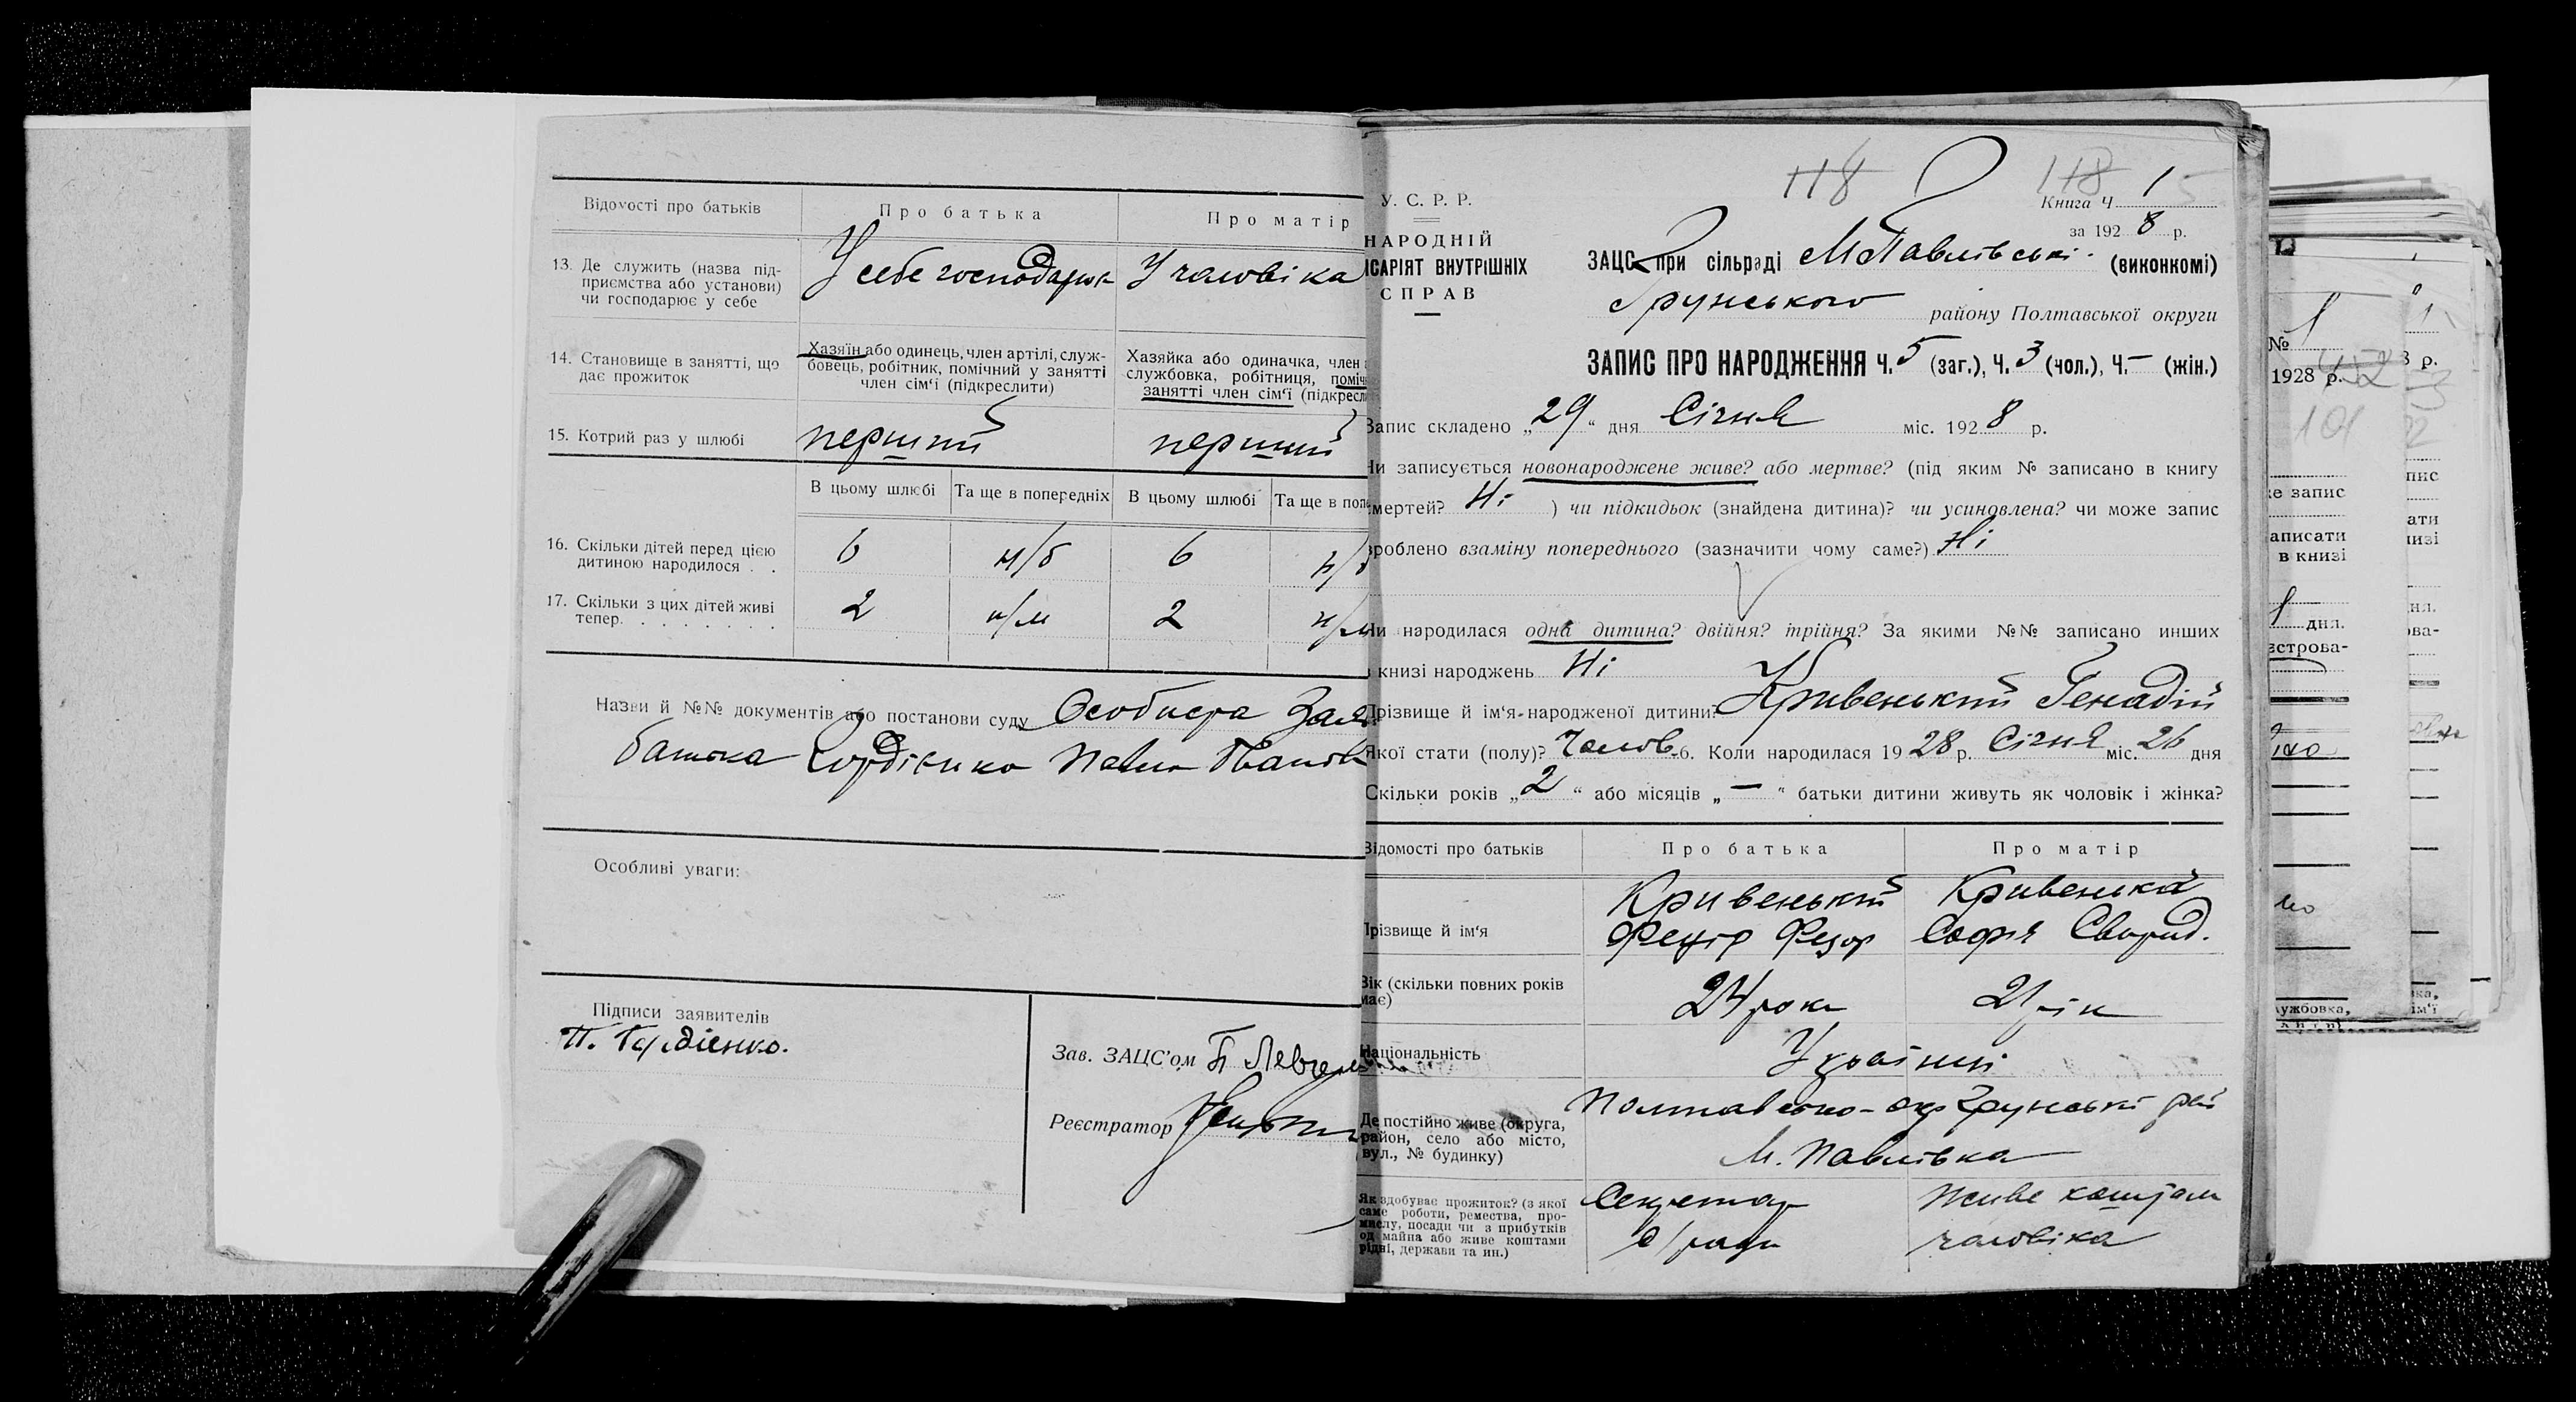 Відомості про батьків
Про батька
Про матір
13. Де служить (назва під-
приємства або установи)
чи господарює у себе
У себе господарює
У чоловіка
14. Становище в занятті, що
дає прожиток
Хазяїн або одинець, член артілі, служ-
бовець, робітник, помічний у занятті
член сім'ї (підкреслити)
Хазяйка або одиначка, член
службовка, робітниця,
занятті член сім'ї
15. Котрий раз у шлюбі
перший
перший
В цьому шлюбі
Та ще в попередніх
В цьому шлюбі
Та ще в
16. Скільки дітей перед цією
дитиною народилося . .
6
н/б
6
17. Скільки з цих дітей живі
тепер. . . . . . . .
2
н/м
2
Назви й №№ документів або постанови суду Особиста
батька Гордієнко Павло
Особливі уваги:
Підписи заявителів
П. Гордієнко.
Зав. ЗАЦС'ом
Реєстратор
118
118
5
У. С. Р. Р.
НАРОДНІЙ
ВНУТРІШНІХ
СПРАВ
Книга Ч 1
за 1928 р.
ЗАЦС при сільраді МПавлівські (виконкомі)
Грунського району Полтавської округи
ЗАПИС ПРО НАРОДЖЕННЯ Ч. 5 (заг.), Ч. 3 (чол.), Ч. — (жін.)
Запис складено „29“ дня Січня міс. 1928 р.
записується новонароджене живе? або мертве? (під яким № записано в книгу
Ні ) чи підкидьок (знайдена дитина)? чи усиновлена? чи може запис
взаміну попереднього (зазначити чому саме?) Ні
народилася одна дитина? двійня? трійня? За якими №№ записано инших
книзі народжень Ні
Прізвище й ім'я народженої дитини: Кривенький Генадій
Якої стати (полу)? Чолов. 6. Коли народилася 1928 р. Січня міс. 26 дня
Скільки років „2“ або місяців „—“ батьки дитини живуть як чоловік і жінка?
Відомості про батьків
Про батька
Про матір
Прізвище й ім'я
Кривенький
Федір Федор
Кривенька
Софія Свирид.
Вік (скільки повних років
має)
24 роки
21 рік
Національність
Україні
Де постійно живе (округа,
район, село або місто,
вул., № будинку)
Полтавсько-окр Грунські рай
М. Павлівка
Як здобуває прожиток? (з якої
саме роботи, ремества, про-
мислу, посади чи з прибутків
од майна або живе коштами
рідні, держави та ин.)
Секретар
с/ради
Живе коштам
чоловіка
№ 1
1928 р.
8 р.
101
запис
аписати
в книзі
дня.